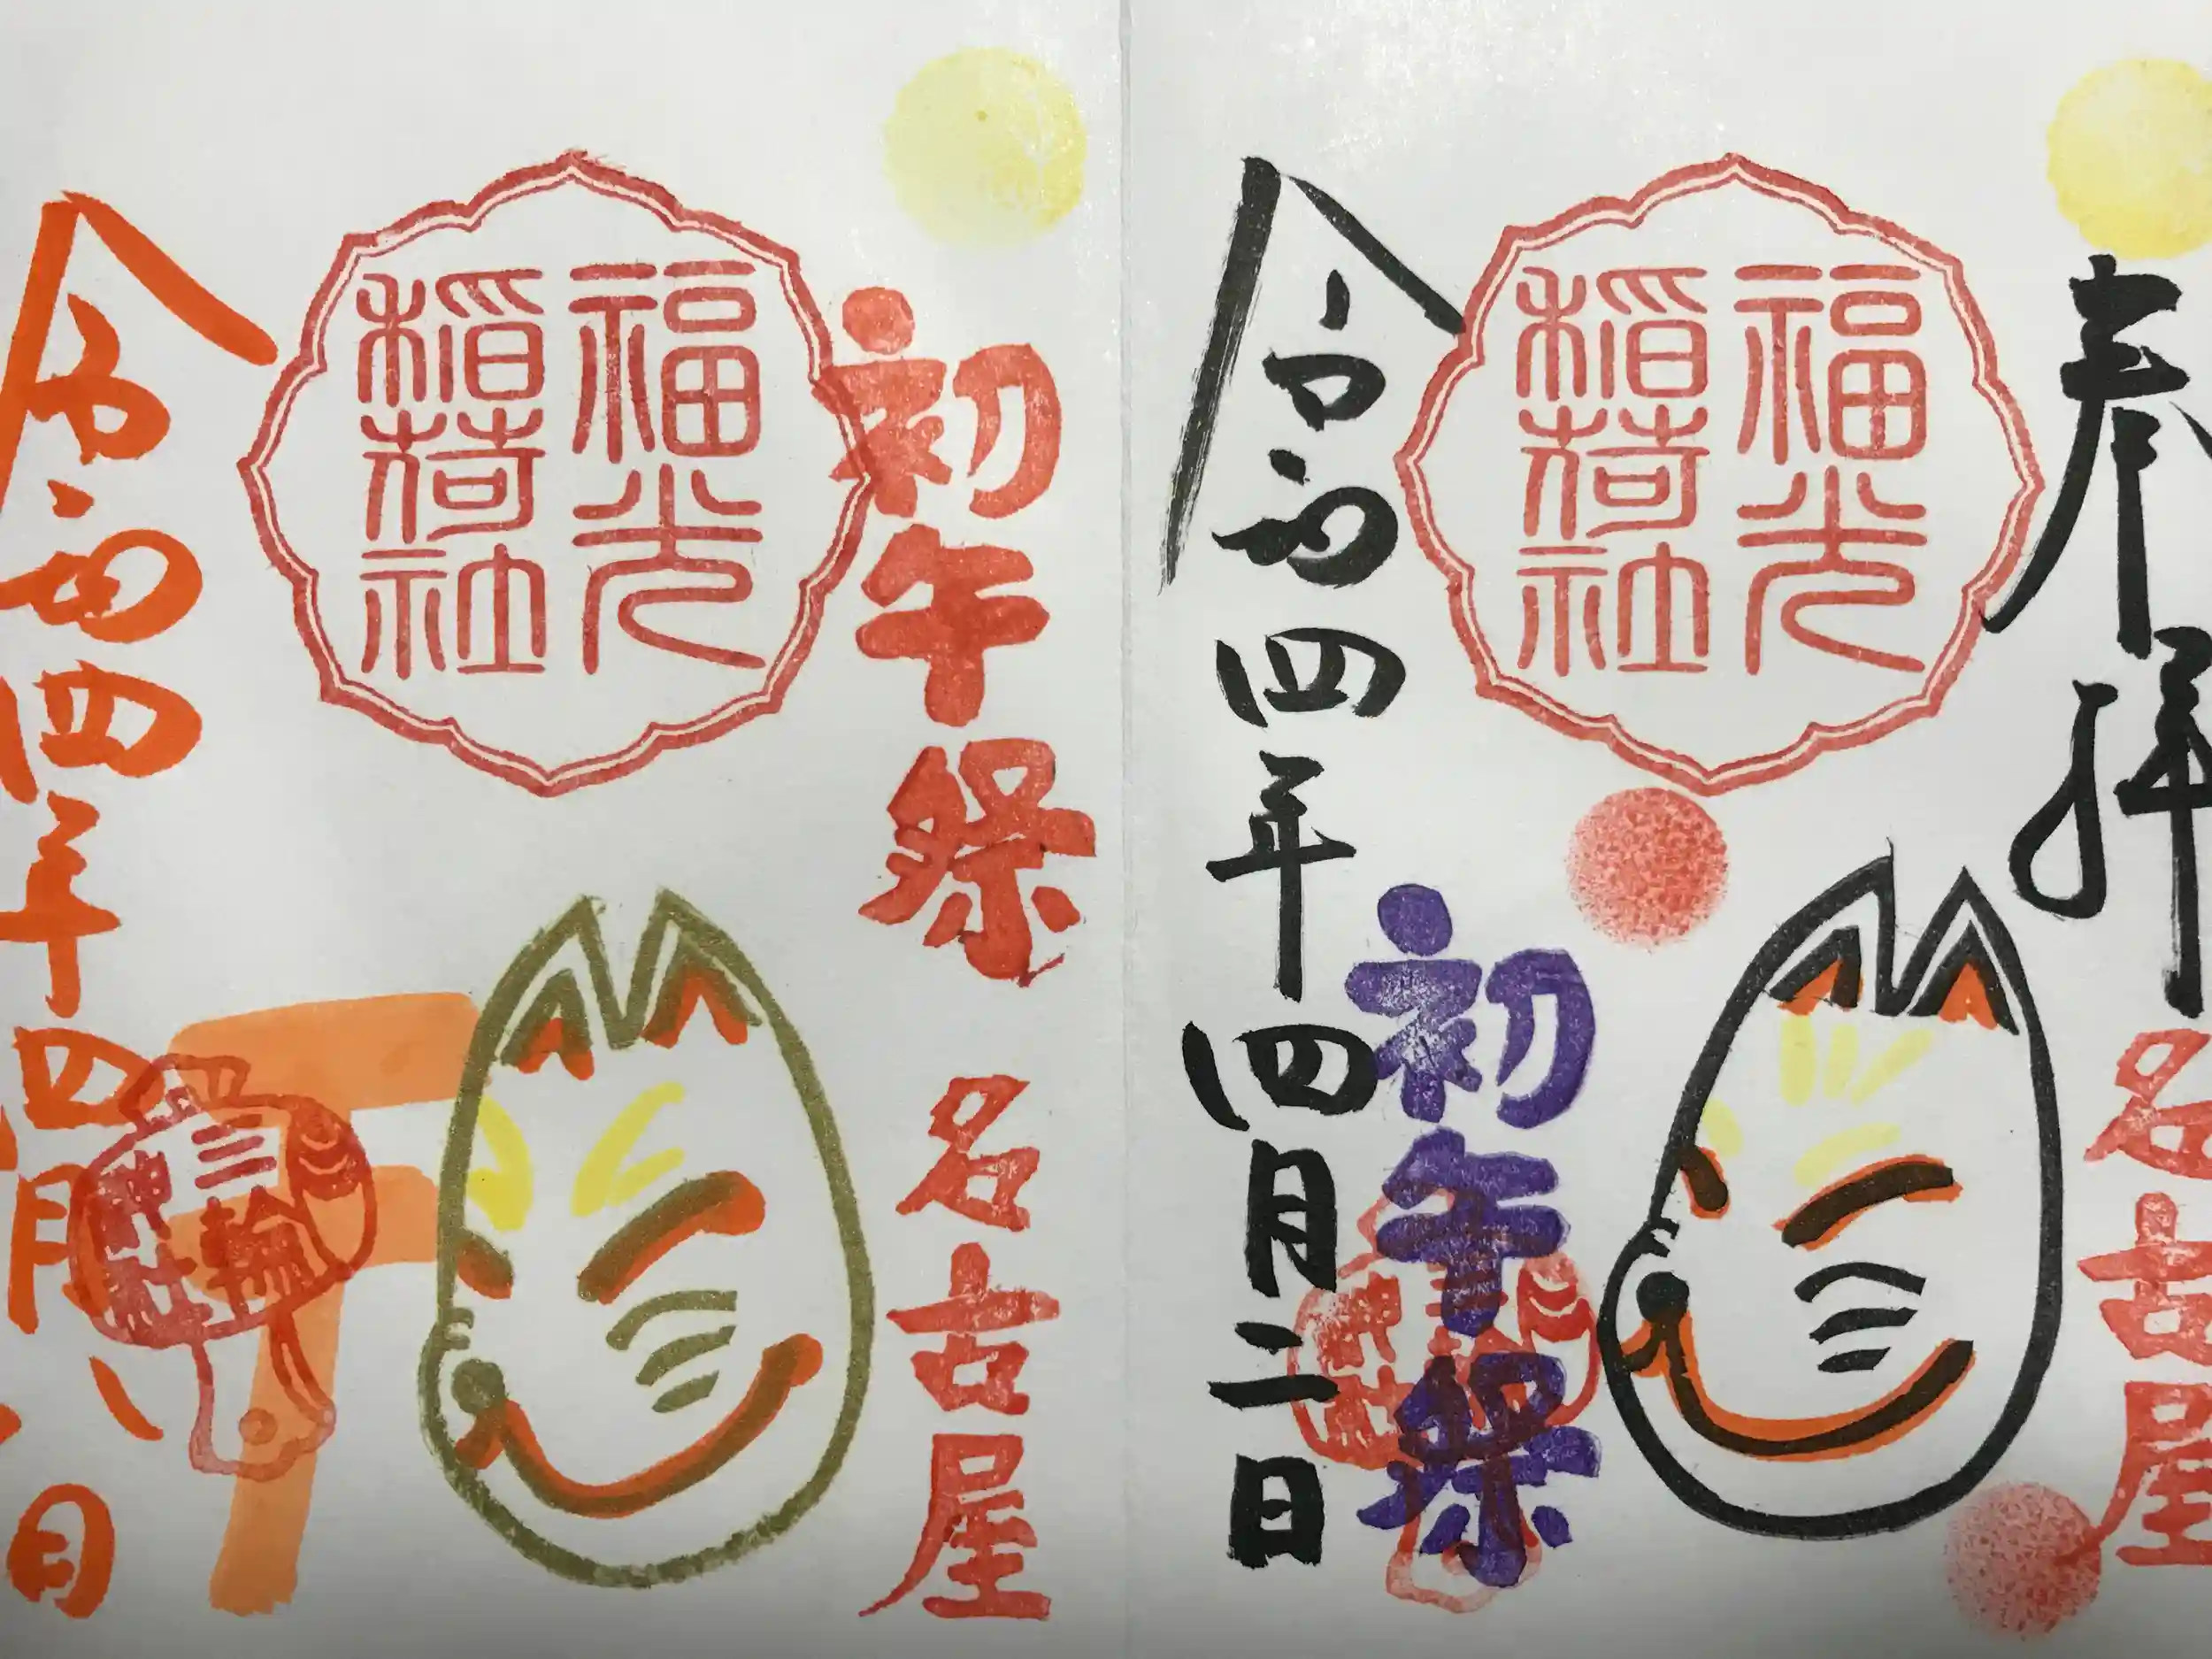 奉拝
名古屋
福光
稲荷社
初午祭
令和四年四月二日
初午祭
名古屋
福光
稲荷社
三輪
神社
令和四年四月八日